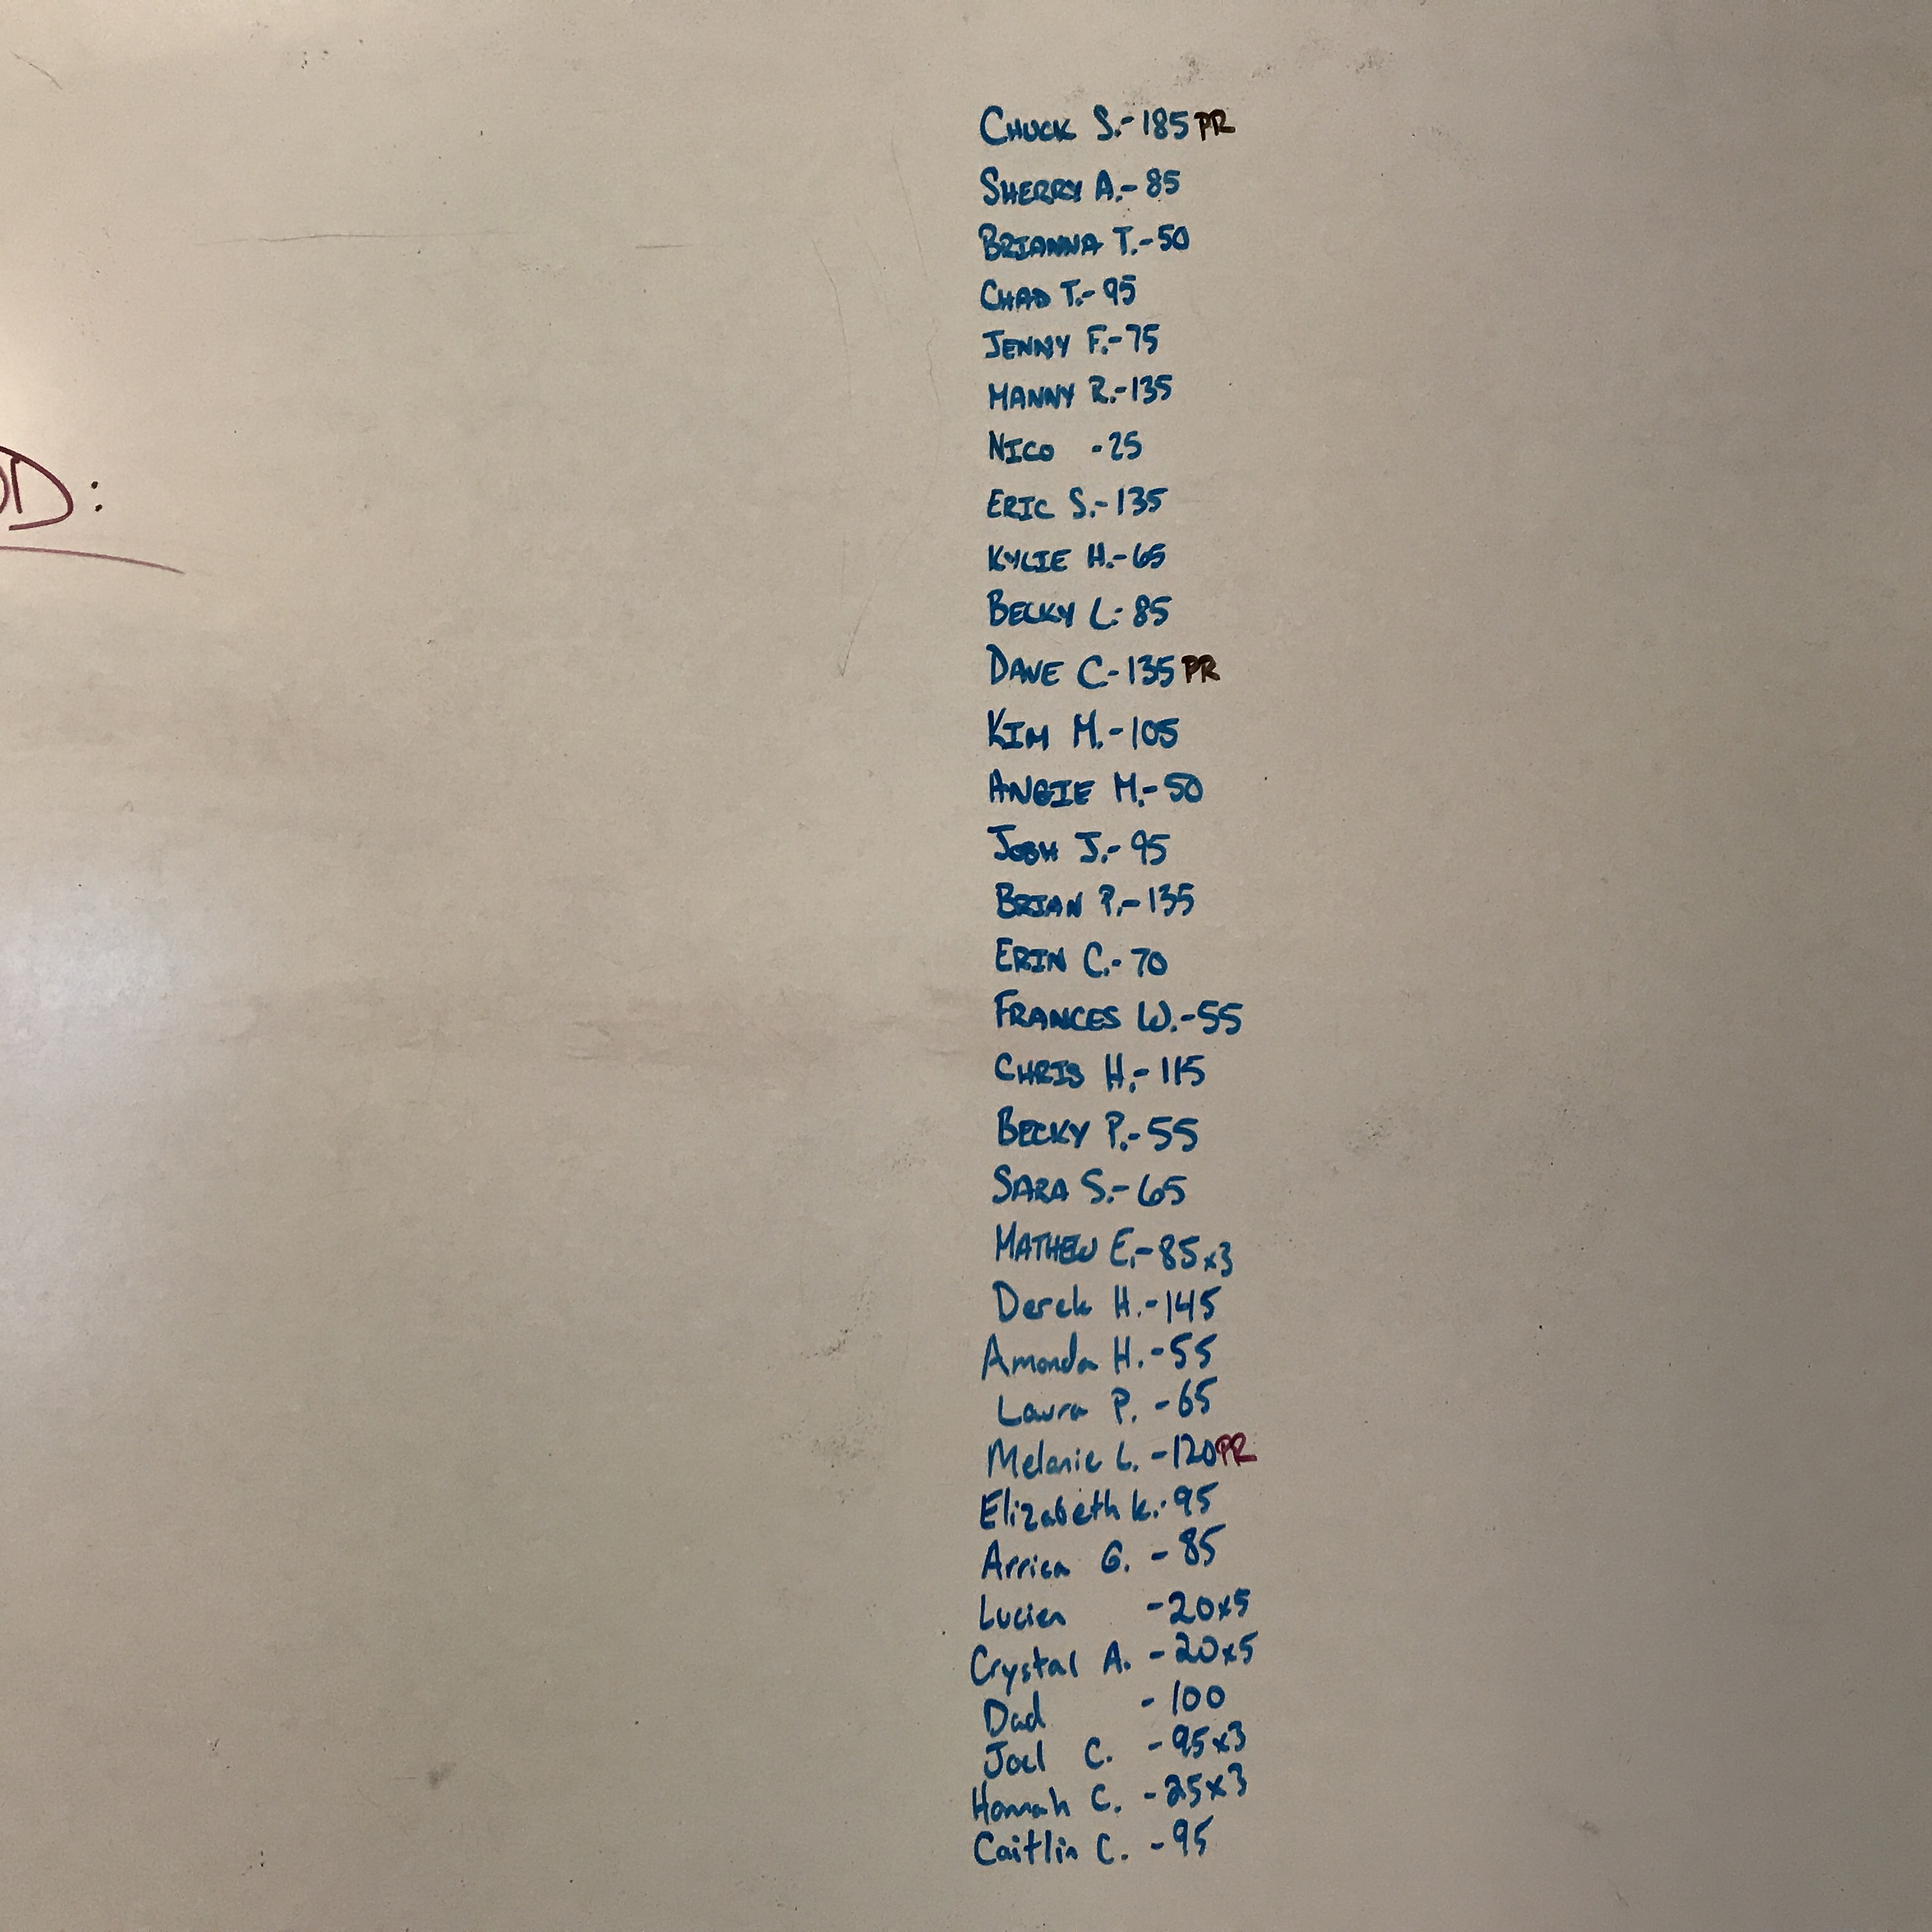 CHUCK S.-185 PR
SHERRY A.-85
BRIANNA T.-50
CHAD T.-95
JENNY F.-75
MANNY R.-135
NICO -25
OD:
ERIC S.-135
KYLIE H.-65
BECKY L.-85
DAVE C-135 PR
KIM M.-105
ANGIE M.-50
JOSH J.-95
BRIAN P.-135
ERIN C.-70
FRANCES W.-55
CHRIS H.-115
BECKY P.-55
SARA S.-65
MATHEW E.-85x3
Derek H.-145
Amanda H.-55
Laura P. -65
Melanie L. -120 PR
Elizabeth K.-95
Arrica G. -85
Lucien -20x5
Crystal A. -20x5
Dad -100
Joel C. -95x3
Hannah C. -25x3
Caitlin C. -95